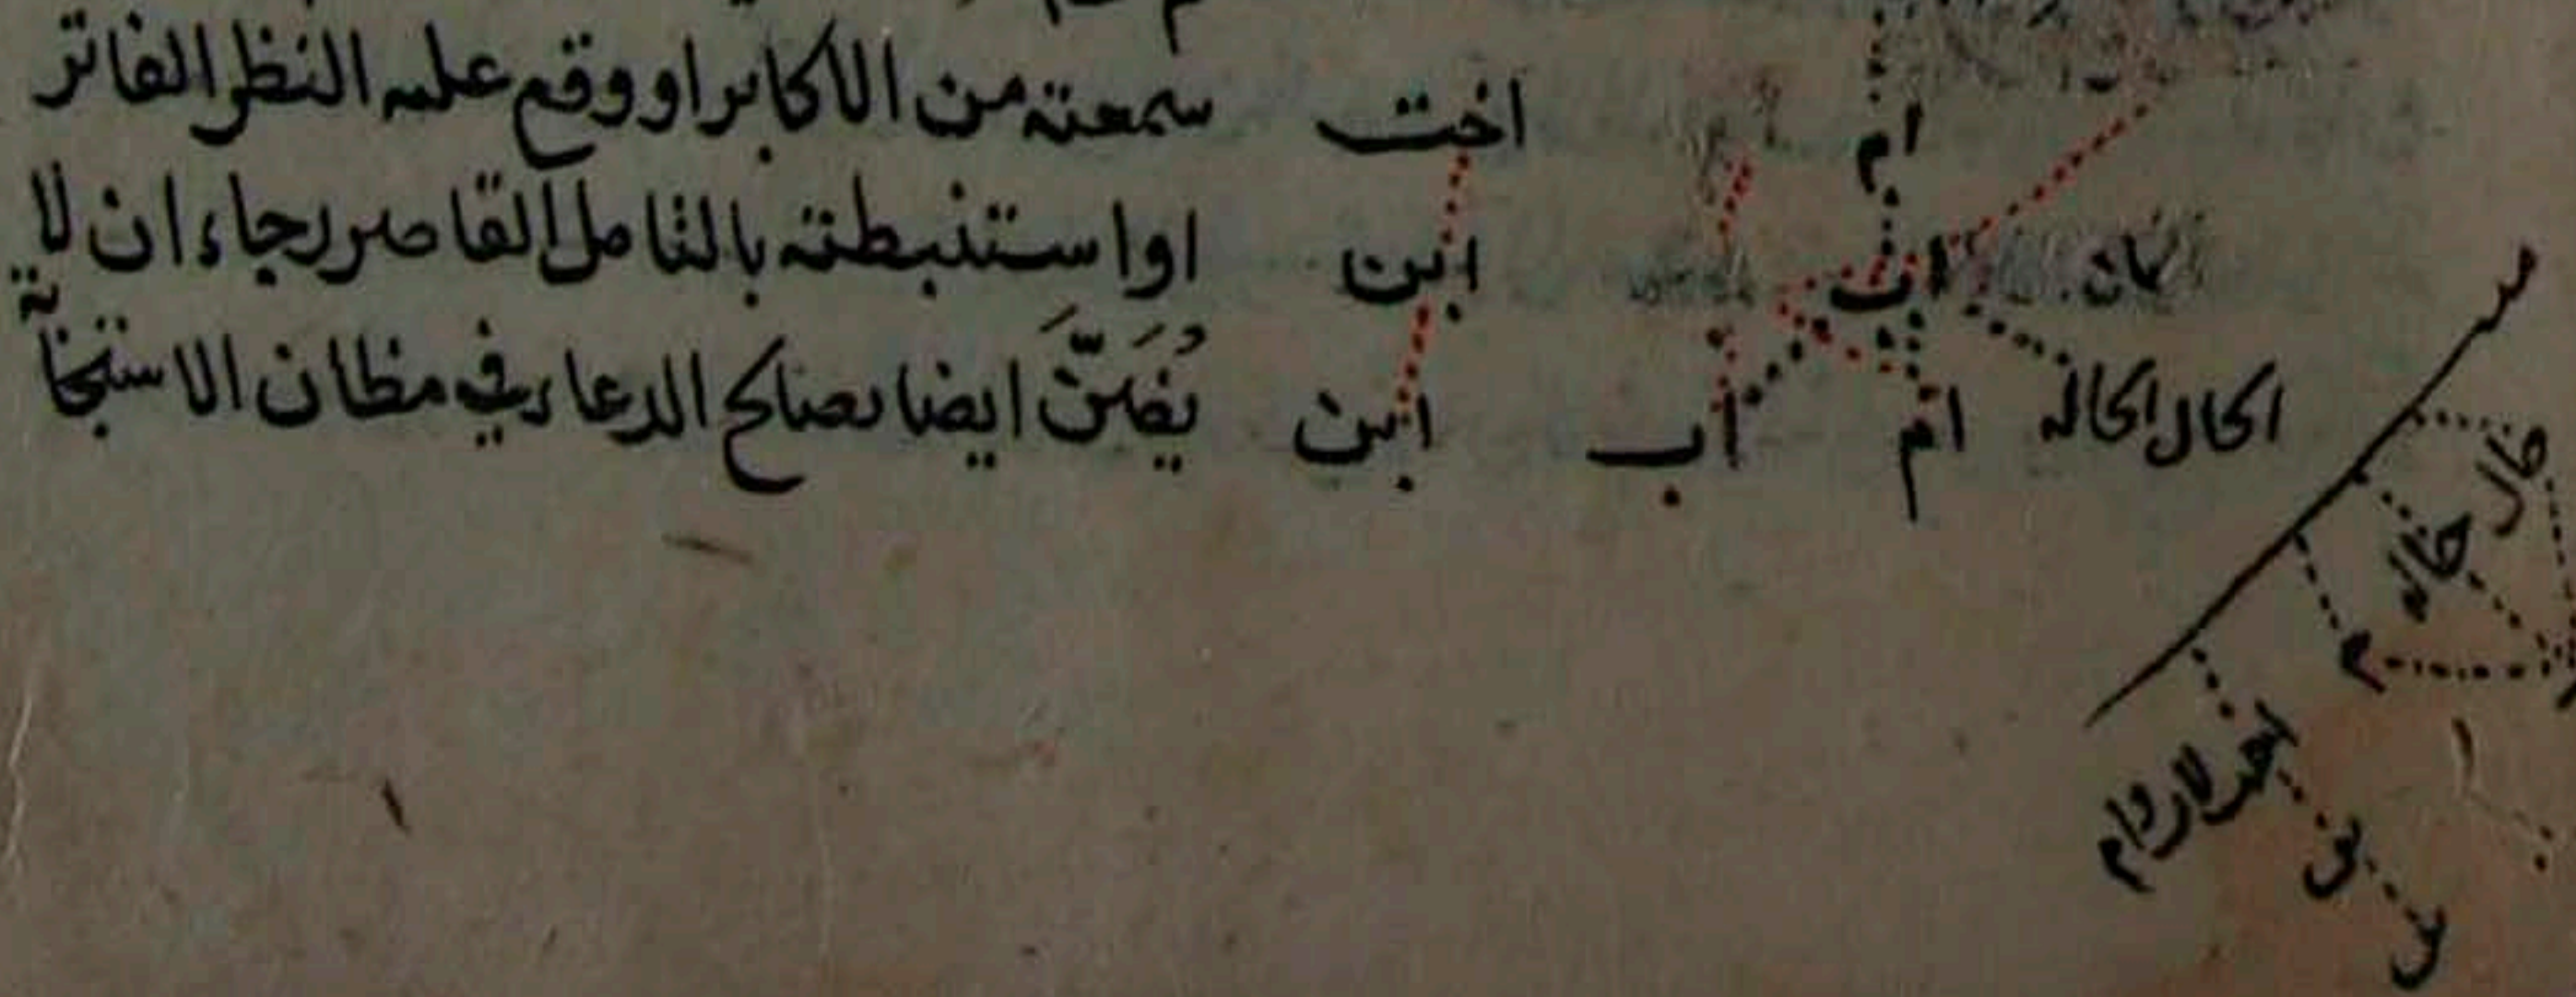 سمعته من الاكابر او وقع عليه النظر الفاتر
او استنبطته بالتامل القاصر رجاء ان لا
يُضَنَّ ايضا بصالح الدعاء في مظان الاستجابة
اخت
ابن
ابن
ام
اب
ام
اب
الخال الخاله
خال
خاله
م